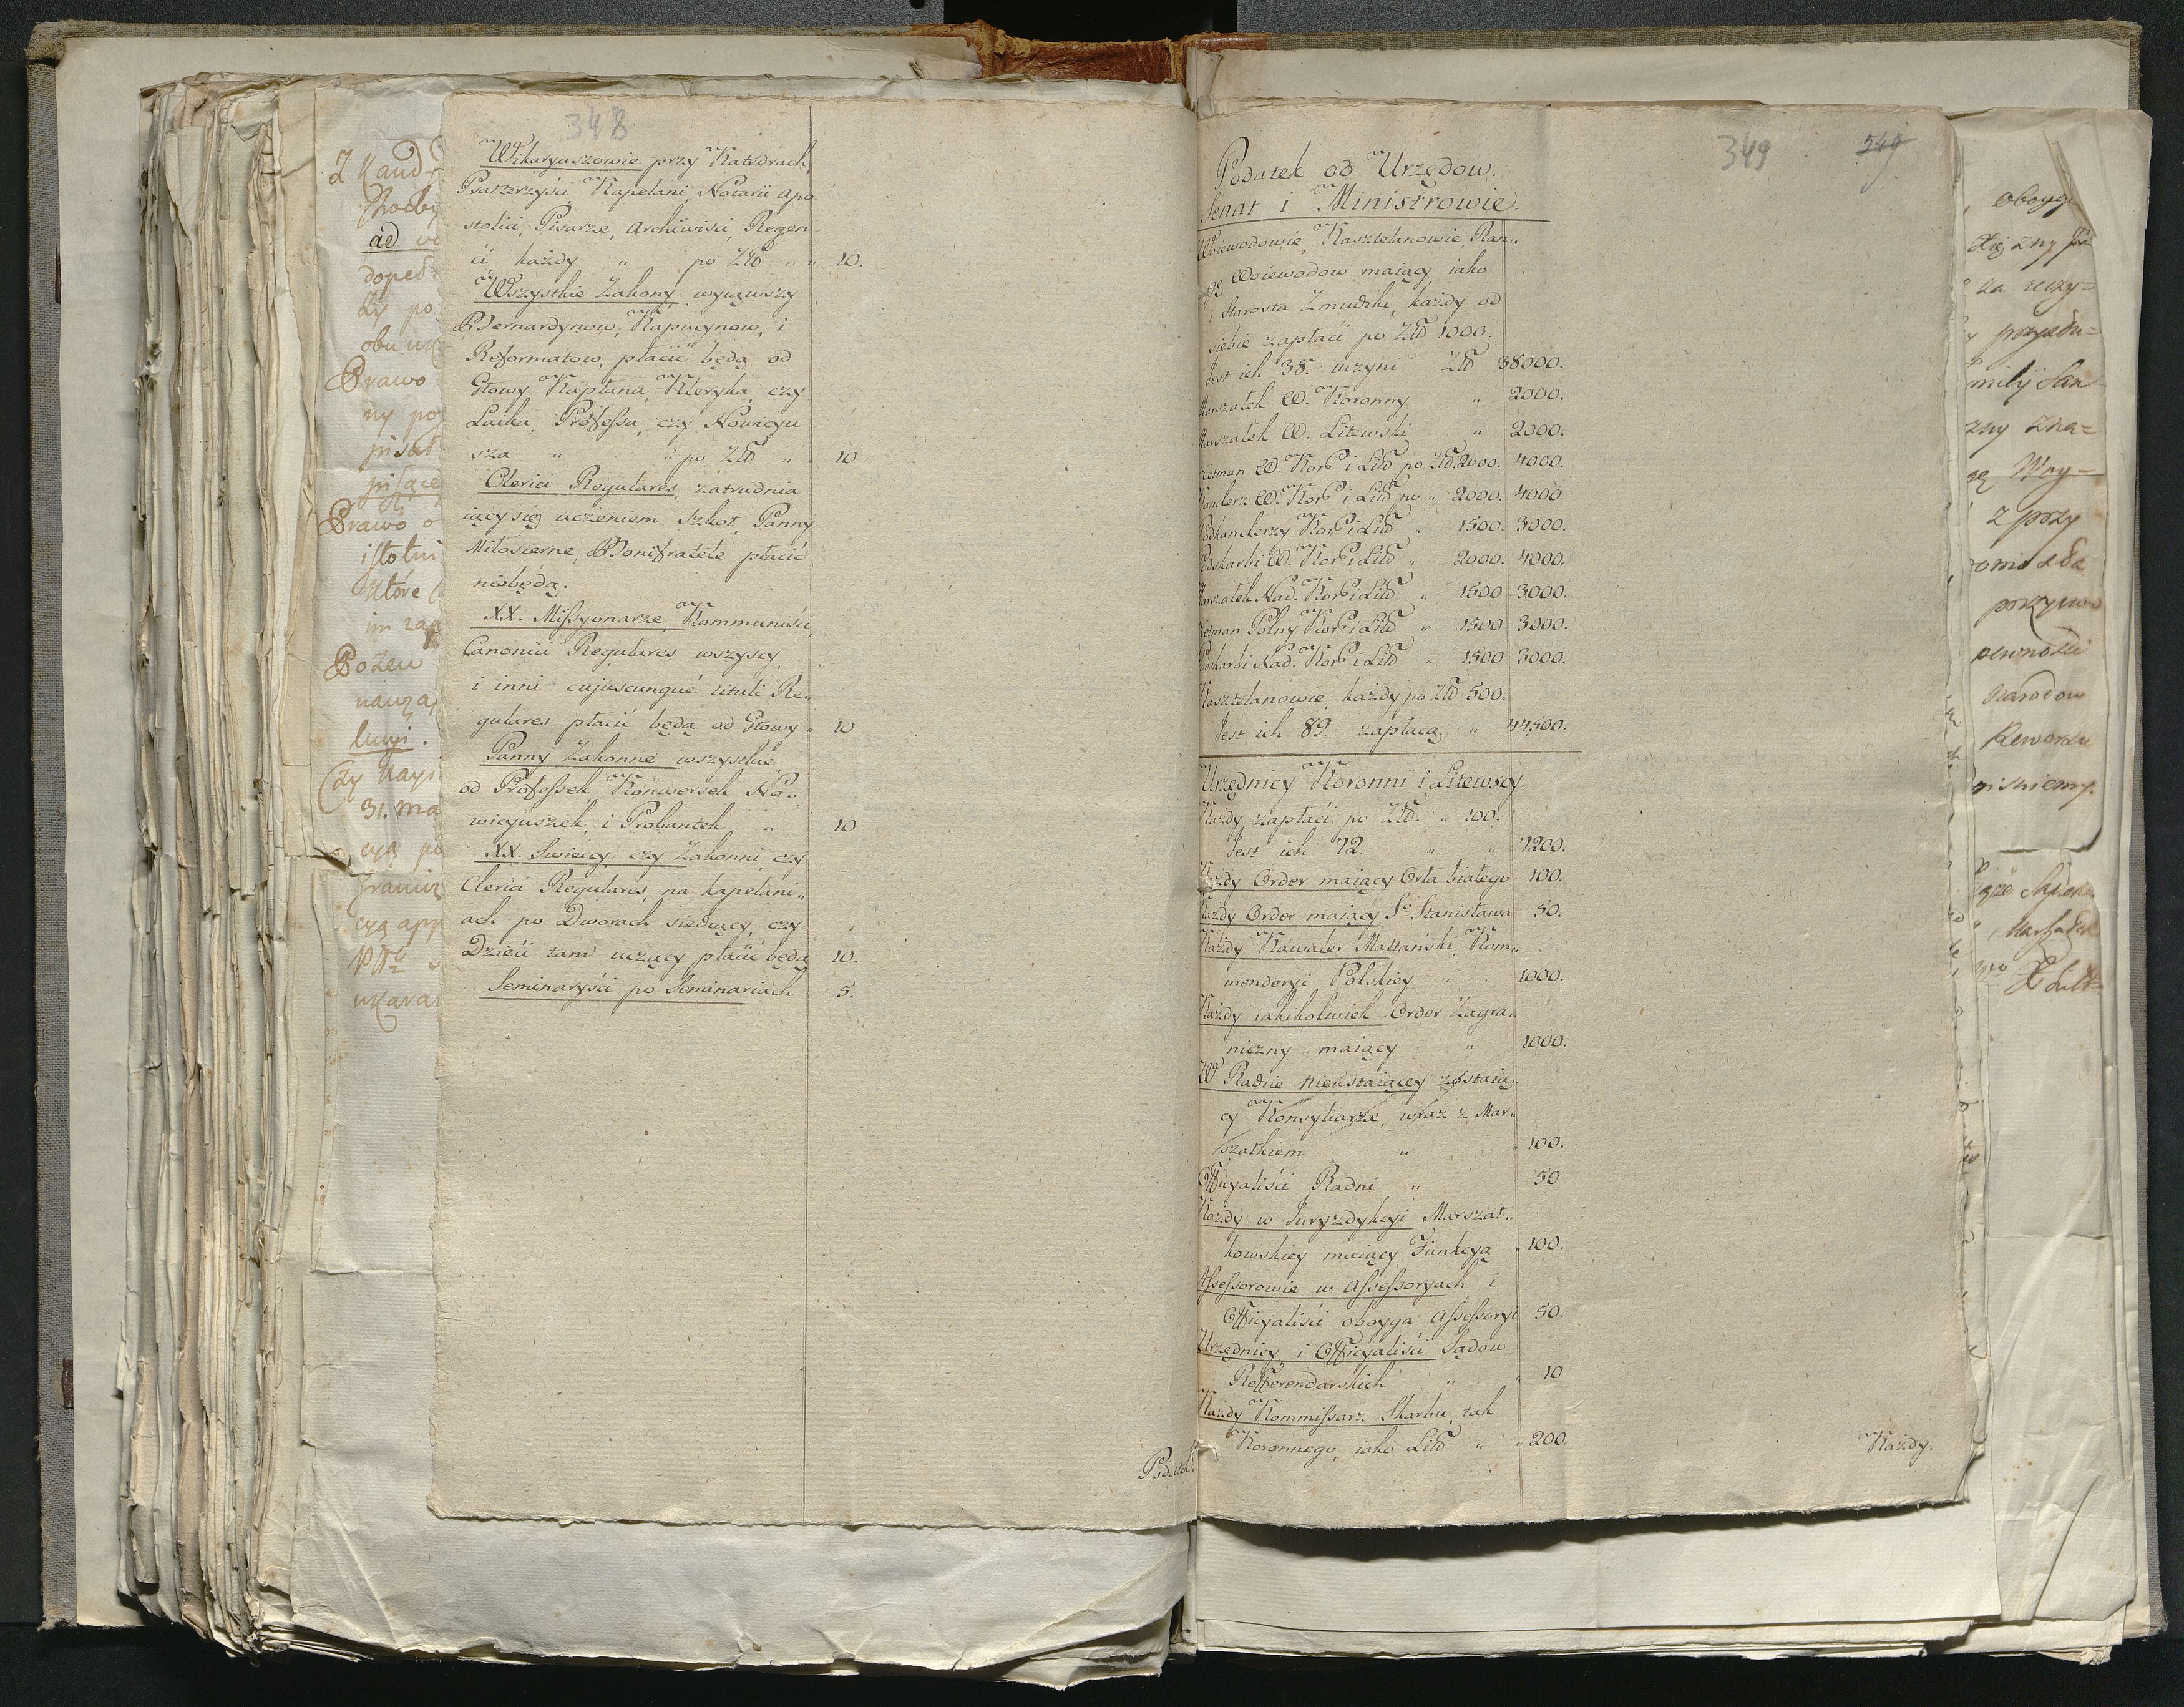 348
Wikaryuszowie przy Katedrach,
Psałterzyści, Kapelani, Notarii Apo
stolici, Pisarze, Archiwisci, Regen
ci każdy " po Złł " " 10.
Wszystkie Zakony, wyiąwszy
Bernardynow, Kapucynow, i
Reformatow, płacić będą od
Głowy Kapłana, Kleryka, czy
Laika, Professa, czy Nowicyu
sza " " po Złł " " 10
Clerici Regulares, zatrudnia
iący się uczeniem Szkoł, Panny
Miłosierne, Bonifratele płacić
niebędą.
XX. Missyonarze, Kommuniści,
Canonici Regulares wszyscy,
i inni cujuscunque tituli Re„
gulares płacić będą od Głowy „ 10
Panny Zakonne wszystkie
od Professek Konwersek No„
wicyuszek, i Probantek " 10
XX. Swieccy, czy Zakonni, czy
Clerici Regulares, na kapelani„
ach po Dworach siedzący, czy
Dzieci tam uczący płacić będą 10.
Seminaryści po Seminariach 5.
Podatek
349
Podatek od Urzędow.
Senat i Ministrowie.
Woiewodowie, Kasztelanowie, Ran„
gę Woiewodow maiący, iako
i Starosta Zmudzki, każdy od
siebie zapłaci po Złł 1000.
Jest ich 38. uczyni Złł 38000.
Marszałek W. Koronny " 2000.
Marszałek W. Litewski " 2000.
Hetman W. Kor. i Litt po Złł. 2000. 4000.
Kanclerz W. Kor. i Litt po " 2000. 4000.
Podkanclerzy Kor. i Litt " 1500. 3000.
Podskarbi W. Kor. i Litt " 2000. 4000.
Marszałek Nad. Kor. i Litt " 1500 3000.
Hetman Polny Kor. i Litt " 1500 3000.
Podskarbi Nad. Kor. i Litt " 1500 3000.
Kasztelanowie, każdy po Złł 500.
Jest ich 89. zapłacą " 44500.
Urzędnicy Koronni i Litewscy.
Każdy zapłaci po Złł. " 100.
Jest ich 72. " " 7200.
Każdy Order maiący Orła białego 100.
Każdy Order maiący So Stanisława 50.
Każdy Kawaler Maltański, Kom„
menderyi Polskiey " " 1000.
Każdy iakikolwiek Order Zagra„
niczny maiący " 1000.
W Radzie Nieustaiącey zostaią„
cy Konsyliarze, wraz z Mar„
szałkiem " " 100.
Officyaliści Radni " 50
Każdy w Juryzdykcyi Marszał„
kowskiey maiący Funkcyą " 100.
Assessorowie w Assessoryach i
Officyaliści oboyga Assessoryi 50.
Urzędnicy i Officyaliści Sądow
Refferendarskich " " 10
Każdy Kommissarz Skarbu, tak
Koronnego, iako Litt " " 200.
Każdy.
ad
dopeł
Prawo
ny po
Prawo o
istotni
Które
31. Ma
przyzwo
Narodow